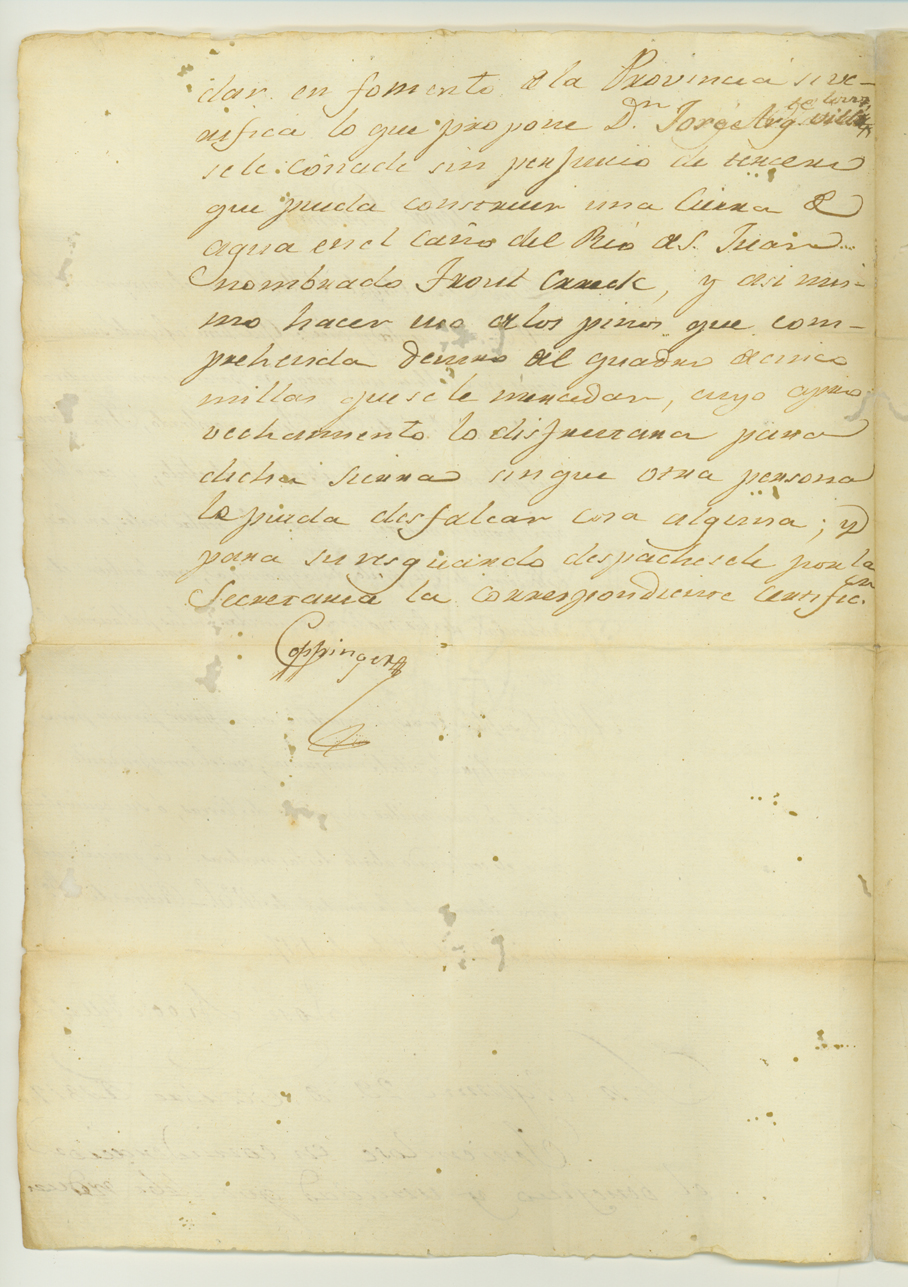 dar en fomento de la Provincia si ve-
rifica lo que propone Dn. Jorge
se le concede sin perjuicio de tercero
que pueda construir una Cierra de
agua en el Caño del Rio de S. Juan
nombrado Trout Creek, y asi mis-
mo hacer uso de los pinos que com-
prehenda dentro del quadro de cinco
millas que se le mercedan, cuyo apro
vechamiento lo disfrutara para
dicha Sierra sin que otra persona
le pueda desfalcar cosa alguna; y
para su resguardo despachesele por la
Secretaria la correspondiente Certific.on
Coppinger